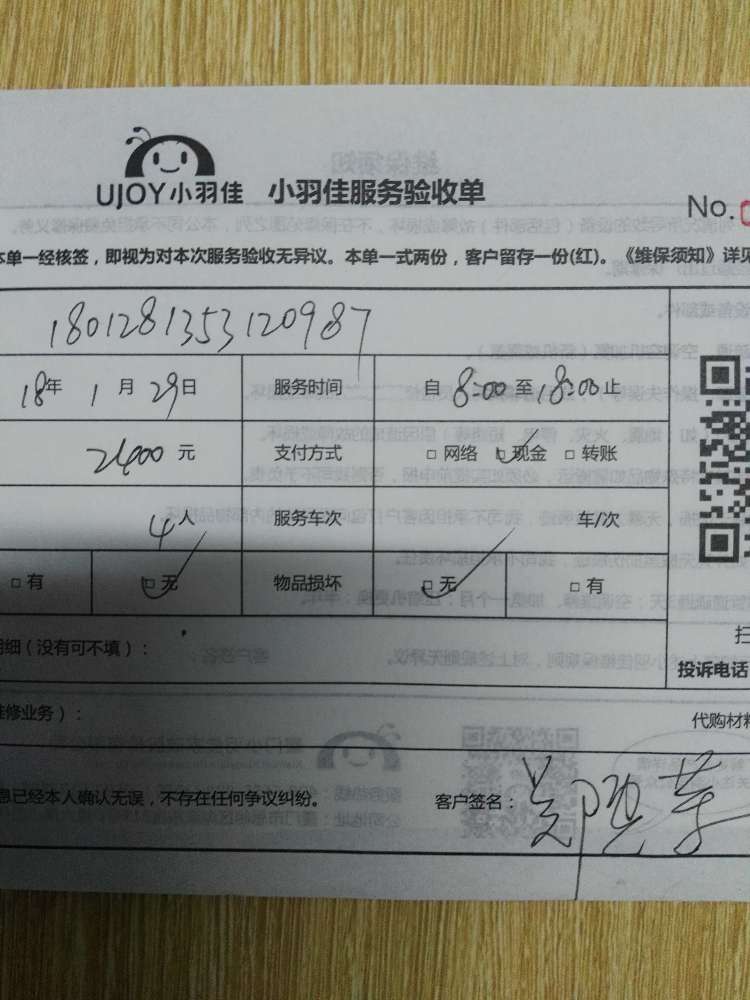 UJOY小羽佳 小羽佳服务验收单
No.
本单一经核签，即视为对本次服务验收无异议。本单一式两份，客户留存一份(红)。《维保须知》详见
1801281353120987
18年 1月 29日 服务时间 自 8:00 至 18:00 止
2400 元 支付方式 □ 网络 ☑ 现金 □ 转账
4人 服务车次 车/次
□ 有 ☑ 无 物品损坏 ☑ 无 □ 有
明细（没有可不填）：
扫
投诉电话
维修业务）：
代购材料
息已经本人确认无误，不存在任何争议纠纷。 客户签名：